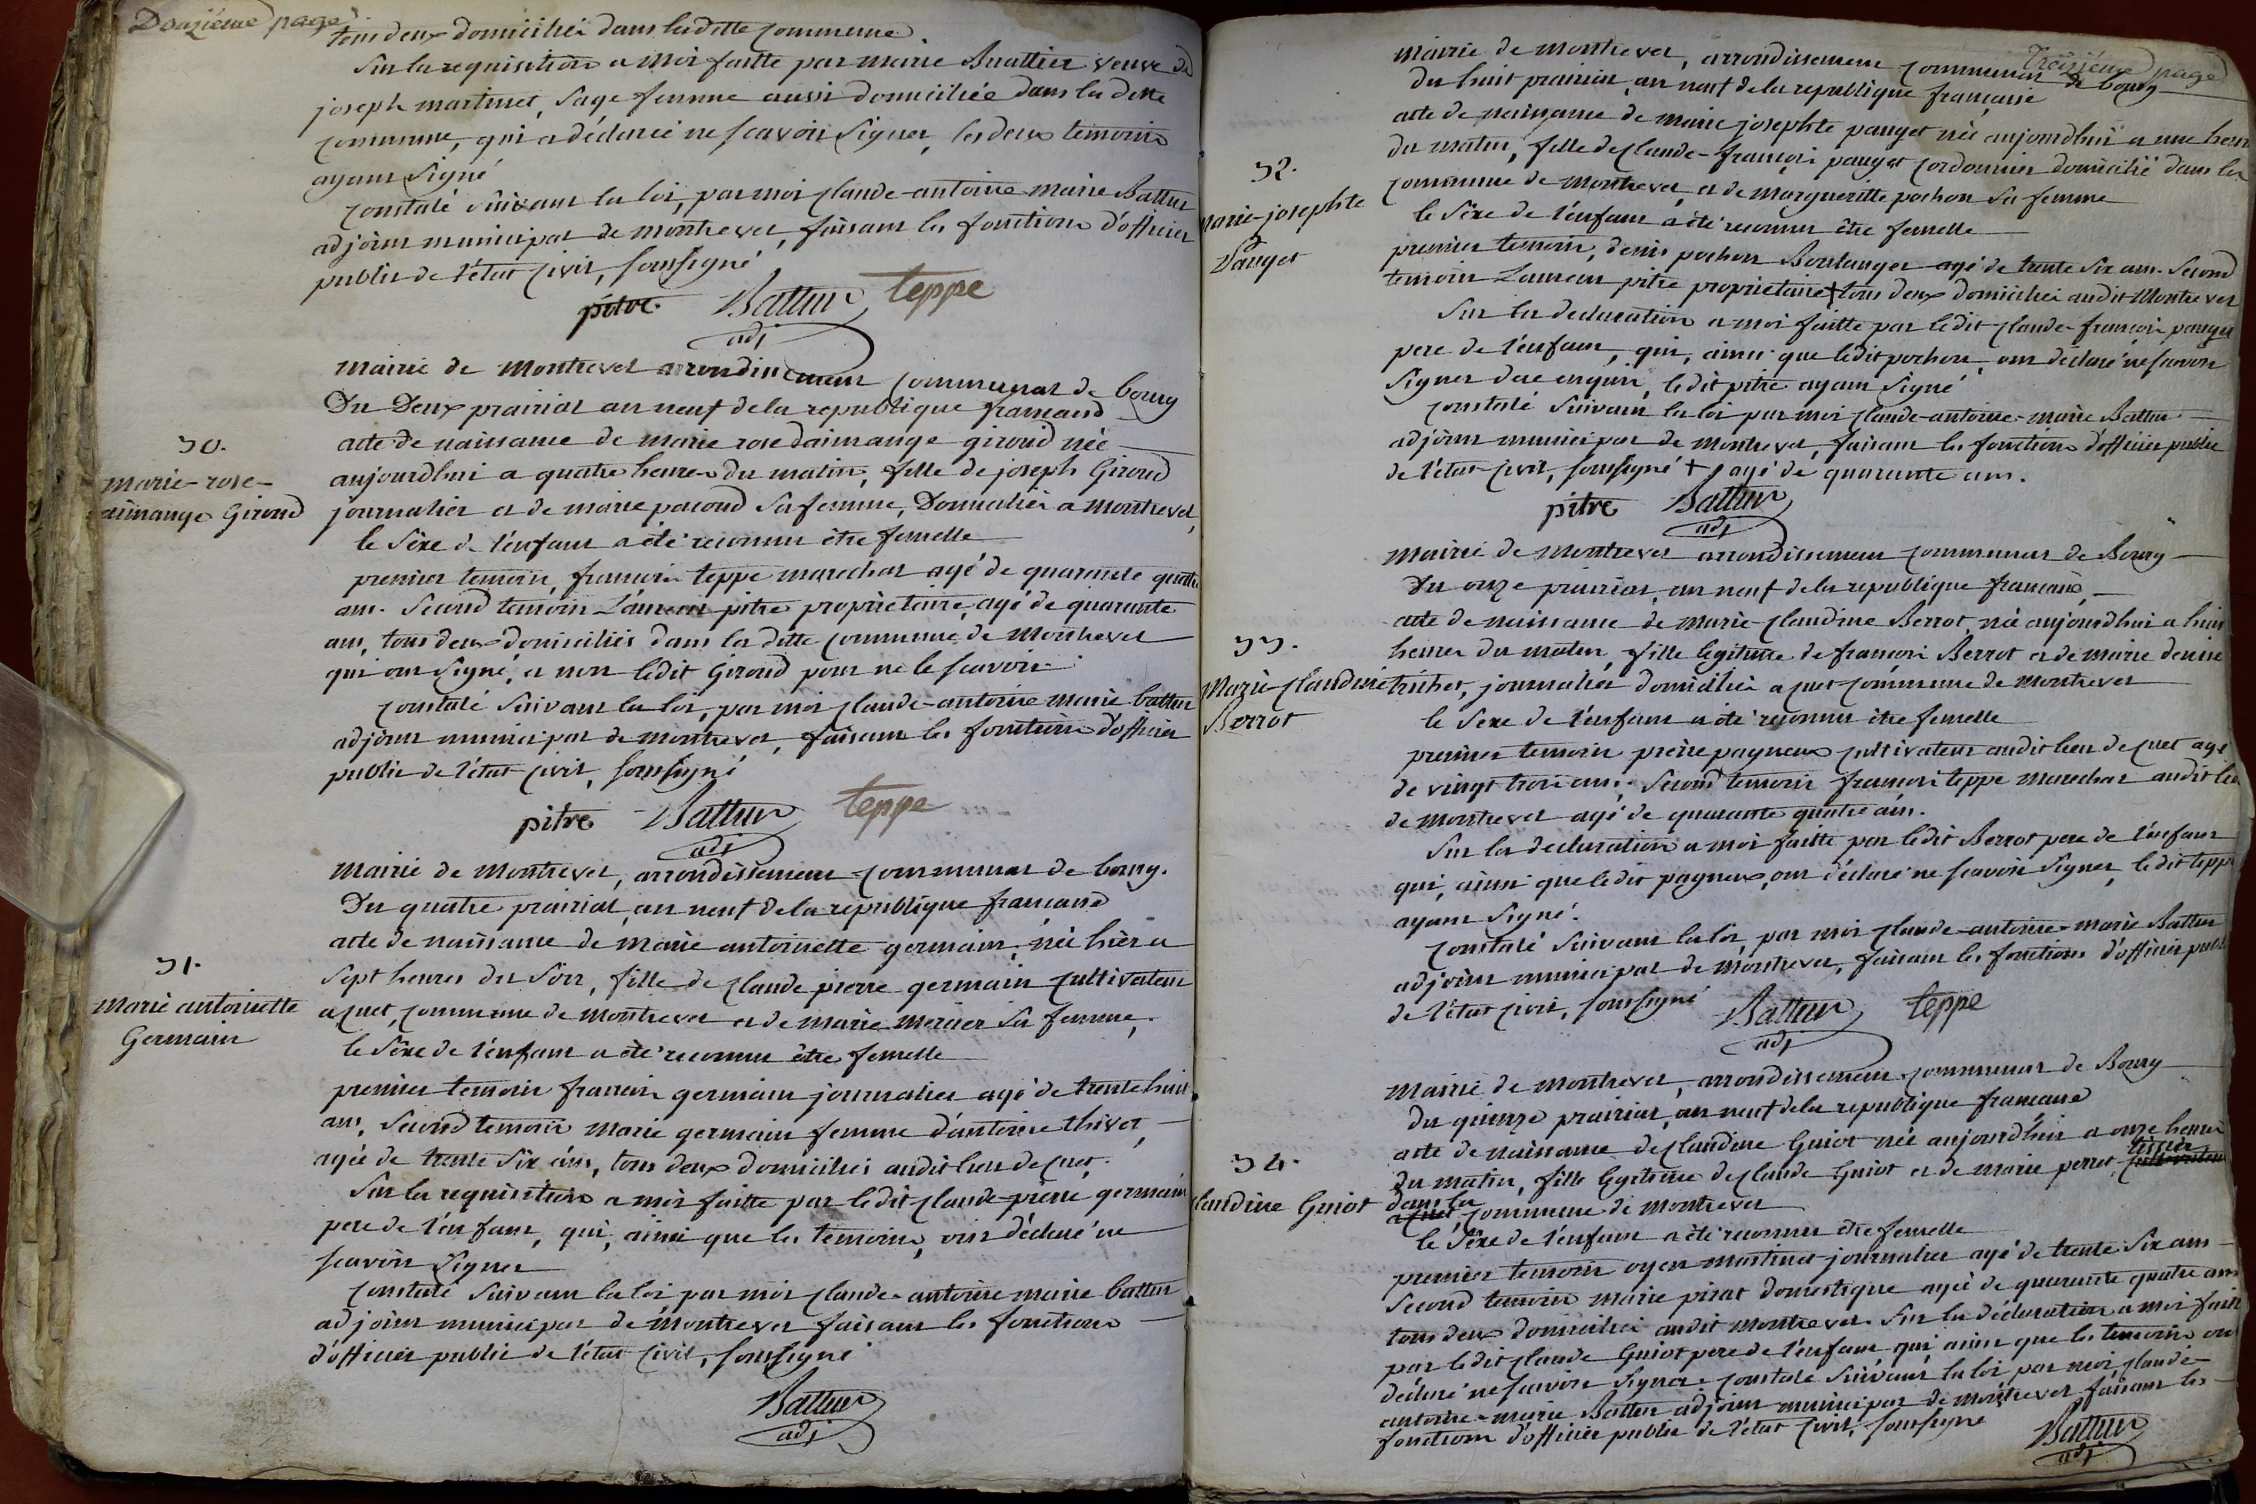 Douzième page
tous deux domiciliés dans la ditte commune.
Sur la requisition a moi faitte par marie Buattier veuve de
joseph martinet, sage femme aussi domiciliée dans la ditte
commune, qui a déclaré ne scavoir signer, les deux temoins
ayant signé
constaté suivant la loi, par moi claude-antoine-marie Battur
adjoint municipal de montrevel, faisant les fonctions d'officier
public de l'état civil, soussigné
pitre Battur teppe
adj
mairie de montrevel arrondissement communal de bourg
Du Deux prairial an neuf de la republique francaise
30.
marie-rose-
aimange Giroud
acte de naissance de marie rose daimange giroud née
aujourdhui a quatre heures du matin, fille de joseph Giroud
journalier et de marie pacoud sa femme, Domiciliés a montrevel,
le sèxe de l'enfant a été reconnu être femelle
premier temoin, francois teppe marechal agé de quarante quatre
ans. second temoin Laurent pitre propriètaire, agé de quarante
ans, tous deux domiciliés dans la ditte commune de montrevel
qui ont signé, et non ledit Giroud pour ne le scavoir.
constaté suivant la loi, par moi claude-antoine marie battur
adjoint municipal de montrevel, faisant les fonctions d'officier
public de l'état civil, soussigné
pitre Battur teppe
adj
mairie de montrevel, arrondissement communal de bourg.
Du quatre prairial, an neuf de la république francaise
31.
marie antoinette
Germain
acte de naissance de marie antoinette germain, née hièr a
sept heures du soir, fille de claude pierre germain cultivateur
a cuet, commune de montrevel et de marie mercier sa femme,
le sèxe de l'enfant a été reconnu être femelle
premier temoin francois germain journalier agé de trente huit
ans, second temoin marie germain femme d'antoine thivet,
agée de trente six ans, tous deux domiciliés audit lieu de cuet.
Sur la requisition a moi faitte par ledit claude-pierre germain
pere de l'enfant, qui, ainsi que les temoins, ont déclaré ne
scavoir signer
constaté suivant la loi par moi claude-antoine marie battur
adjoint municipal de montrevel faisant les fonctions
d'officier public de l'état civil, soussigné
Battur
adj
Troizième page
mairie de montrevel, arrondissement communal de bourg
Du huit prairial, an neuf de la republique francaise
32.
marie-josephte
Pauget
acte de naissance de marie josephte pauget née aujourdhui a une heure
du matin, fille de claude-françois pauget cordonnier domicilié dans la
commune de montrevel, et de margueritte pochon sa femme
le sèxe de l'enfant a été reconnu être femelle
premier temoin, denis pochon Boulanger agé de trente six ans. second
temoin Laurent pitre propriètaire + tous deux domiciliés audit Montrevel
Sur la declaration a moi faitte par ledit claude-françois pauget
pere de l'enfant, qui, ainsi que ledit pochon, ont declaré ne scavoir
signer de ce enquis, ledit pitre ayant signé
constaté suivant la loi par moi claude-antoine-marie Battur
adjoint municipal de montrevel, faisant les fonctions d'officier public
de l'état civil, soussigné + agé de quarante ans.
pitre Battur
adj
mairie de montrevel arrondissement communal de Bourg
Du onze prairial, an neuf de la republique francaise,
33.
Marie-claudine
Berrot
acte de naissance de marie-claudine Berrot, née aujourdhui a huit
heures du matin, fille legitime de francois Berrot et de marie denise
trichet, journalier domiciliés a cuet commune de montrevel
le sexe de l'enfant a été reconnu être femelle
premier temoin pierre pagneux cultivateur audit lieu de cuet agé
de vingt trois ans, second temoin francois teppe marechal audit lieu
de montrevel agé de quarante quatre ans.
Sur la declaration a moi faitte par ledit Berrot pere de l'enfant
qui, ainsi que ledit pagneux, ont déclaré ne scavoir signer, ledit teppe
ayant signé.
constaté suivant la loi, par moi claude-antoine-marie Battur
adjoint municipal de montrevel, faisant les fonctions d'officier public
de l'état civil, soussigné
Battur teppe
adj
mairie de montrevel, arrondissement communal de Bourg
Du quinze prairial, an neuf de la republique francaise
34.
claudine Guiot
acte de naissance de claudine Guiot née aujourdhui a onze heures
du matin, fille legitime de claude Guiot et de marie perret tissier cultivateur
dans la
a cuet, commune de montrevel
le sèxe de l'enfant a été reconnu être femelle
premier temoin oyen martinet journalier agé de trente six ans
second temoin marie pirat domestique agée de quarante quatre ans
tous deux domiciliés audit montrevel. Sur la déclaration a moi faitte
par ledit claude Guiot pere de l'enfant qui, ainsi que les temoins ont
declaré ne scavoir signer. constaté suivant la loi, par moi claude-
antoine-marie Battur adjoint municipal de montrevel faisant les
fonctions d'officier public de l'état civil, soussigné
Battur
adj